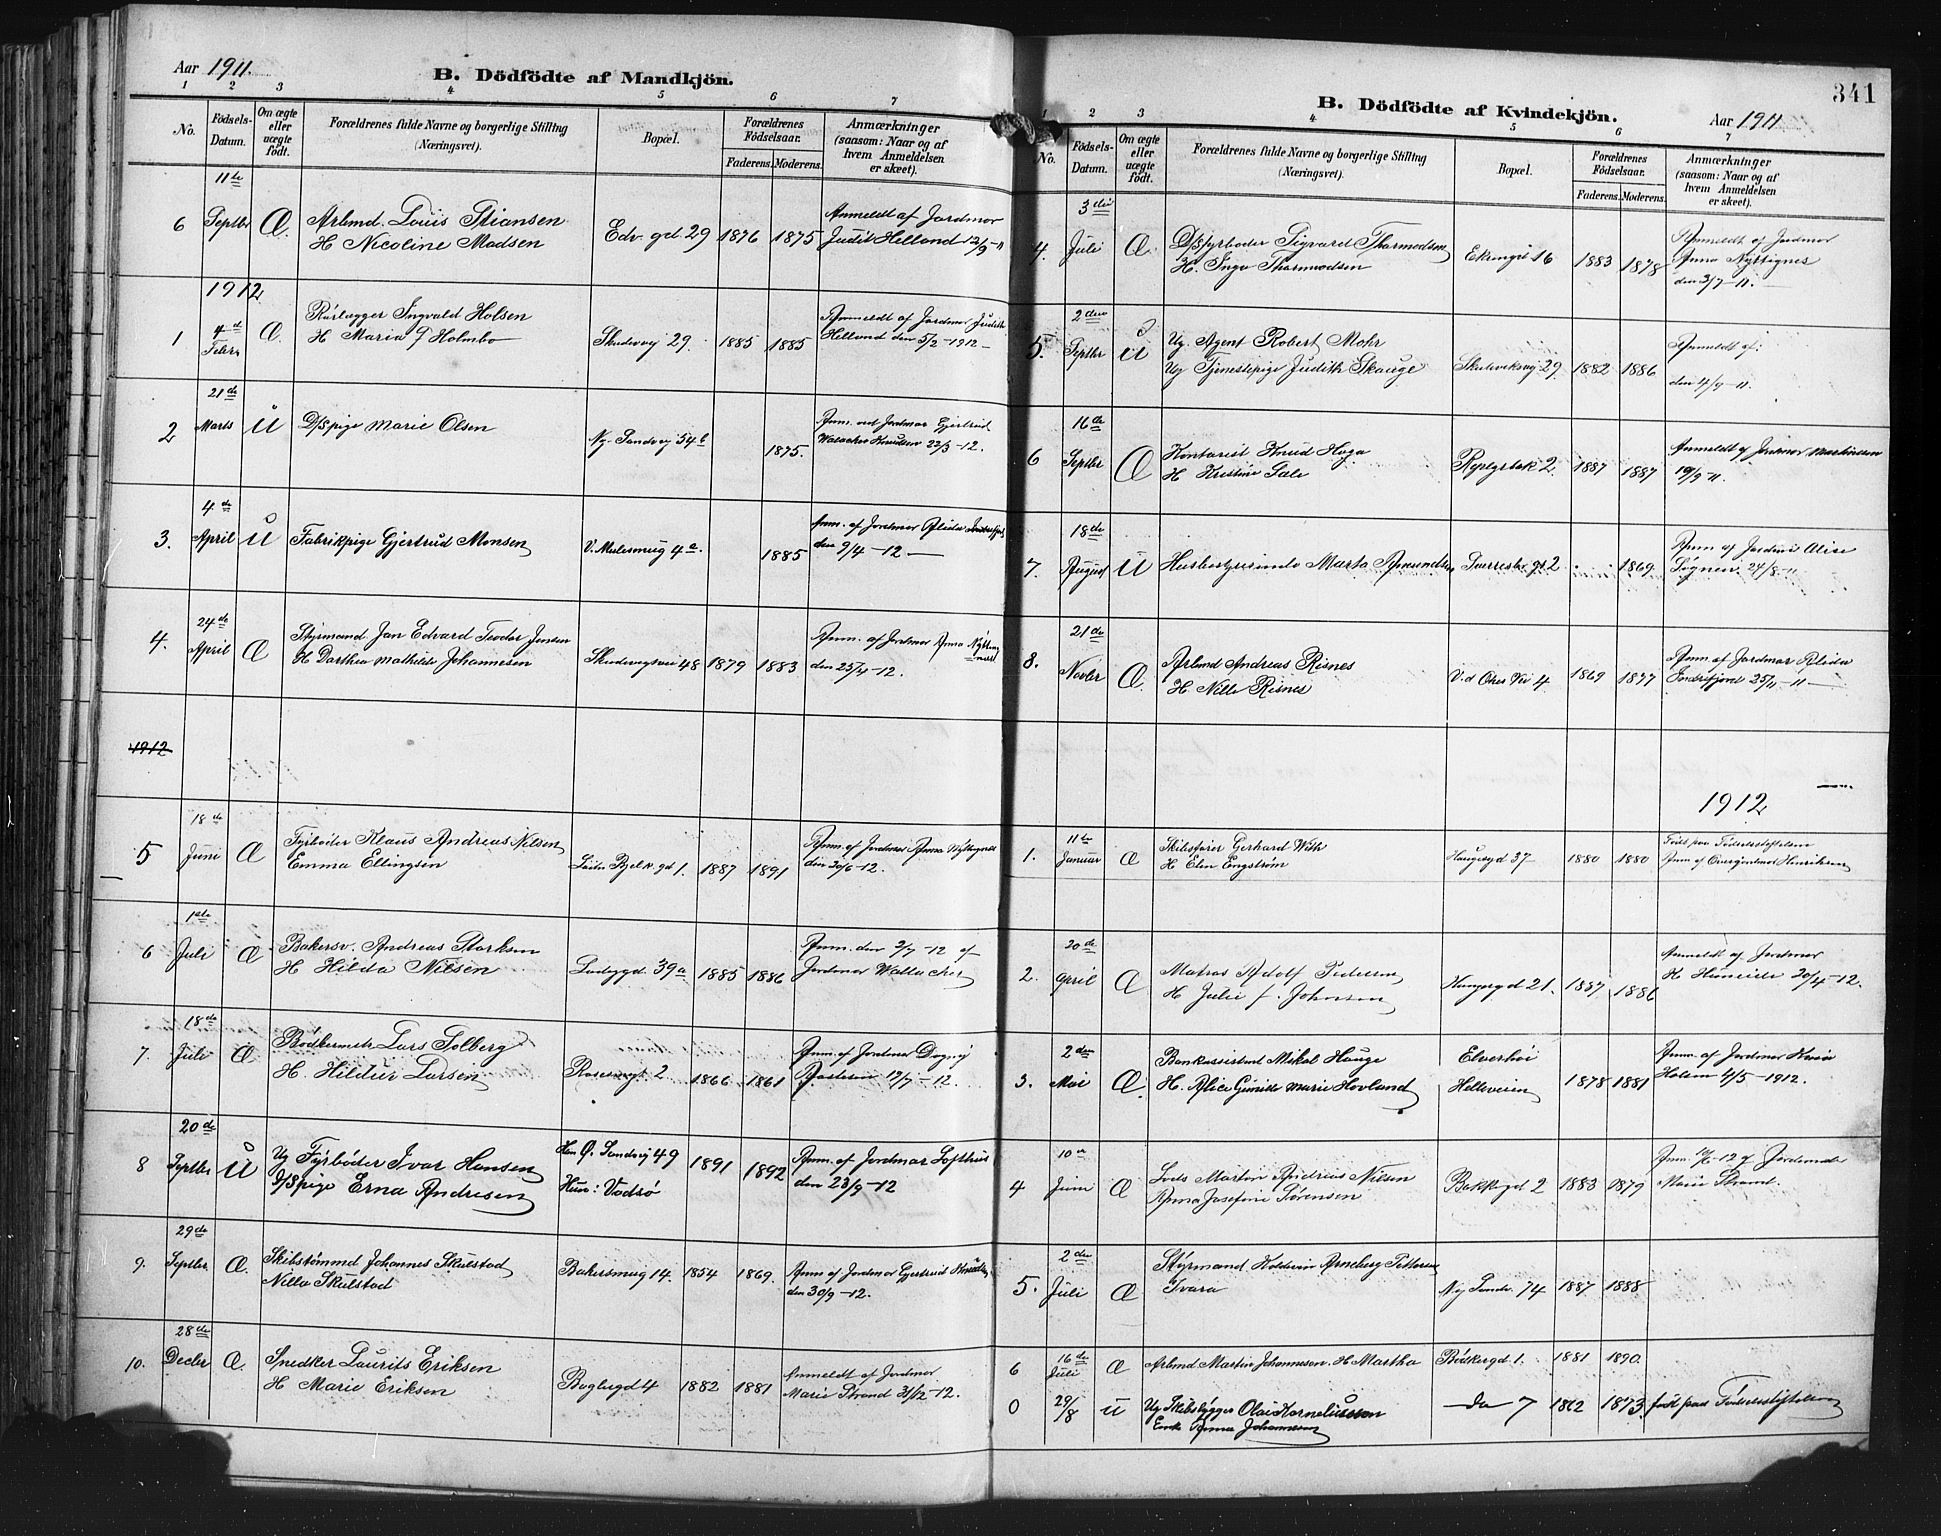 Aar 1911.
B. Dödfödte af Mandkjön.
1 2 3 4 5 6 7
No. Födsels-Datum. Om ægte eller uægte födt. Forældrenes fulde Navne og borgerlige Stilling (Næringsvei). Bopæl. Forældrenes Födselsaar. Faderens. Moderens. Anmærkninger (saasom: Naar og af hvem Anmeldelsen er skeet).
11te
6 Septbr Æ. Arbmd. Louis Stiansen Edv. gd 29 1876 1875 Anmeldt af Jordmor
H Nicoline Madsen Judit Helland 12/9 11
1912
1 4d Febr Æ. Rørlægger Ingvald Holsen Skudevig 29. 1885 1885 Anmeldt af Jordmor Judith
H Maria f Holmbo Helland den 5/2-1912-
21de
2 Marts U D/Spige Marie Olsen Ny-Sandvig 54b 1875. Anm. ved Jordmor Gjertrud
Knudsen 22/3-12.
4de
3. April U Fabrikpige Gjertrud Monsen V. Mulesmug 4a. 1885 Anm. af Jordmor Alida
den 9/4-12-
24de
4. April Æ Styrmand Jan Edvard Teodor Jensen 48 1879 1883 Anm. af Jordmor Anna
H Dorthea Mathilde Johannesen den 25/4-12.
1912
18de
5 Juni Æ Fyrbøder Klaus Andreas Nilsen gd 1. 1887 1891 Anm. af Jordmor Anna
Emma Ellingsen den 20/6-12.
1ste
6 Juli Æ Bakersv. Andreas Storksen Ladegd. 39a 1885 1886 Anm. den 2/7-12 af
H Hilda Nilsen Jordmor
18de
7. Juli Æ Bødkermstr Lars Solberg 2 1866 1861 Anm. af Jordmor Dagny
H. Hildur Larsen 19/7-12.
20de
8 Septbr U Ug Fyrbøder Ivar Hansen Han Ø. Sandvig 49 1891 1892 Anm. af Jordmor Lofthus
D/Spige Erna Andresen Hun: Vadsø den 23/9-12
29de
9. Septbr. Æ. Skibstømmd Johannes Skulstad Bakersmug 14. 1854 1869. Anm af Jordmor Gjertrud Knudsen
Nilla Skulstad den 30/9-12.
28de
10. Decbr Æ. Snedker Laurits Eriksen Boglugd 4 1882 1881 Anmeldt af Jordmor
H Marie Eriksen Marie Strand 31/12-12.
341
B. Dödfödte af Kvindekjön.
Aar 1911
1 2 3 4 5 6 7
No. Födsels-Datum. Om ægte eller uægte födt. Forældrenes fulde Navne og borgerlige Stilling (Næringsvei). Bopæl. Forældrenes Födselsaar. Faderens. Moderens. Anmærkninger (saasom: Naar og af hvem Anmeldelsen er skeet).
3die
4. Juli Æ D/Sfyrbøder Sigvard Thormodsen Ekrengt 16 1883 1878 Anmeldt af Jordmor
H. Inga Thormodsen Anna
den 3/7-11.
2den
5. Septbr U Ug Agent Robert Mohr Skuteviksvig 29. 1882 1886 Anmeldt af:
Ug Tjenestepige Judith Skauge den 4/9-11.
16de
6 Septbr Æ Kontorist Knud Haga 2. 1887 1887 Anmeldt af Jordmor Martinsen
H Kristine Sale 19/9-11.
18de
7. August U Husbestyrerinde Marta Amundsen gt 2 1869. Anm af Jordmor Alise
24/8-11
21de
8. Novbr Æ. Arbmd Andreas Risnes V.d Ohes Vei 4 1869 1877 Anm. af Jordmor Alida
H Nille Risnes 25/11-11-
1912
11te
1. Januar Æ Skibsfører Gerhard Wiik Haugesgd 37 1880 1880 Født paa Fødselsstiftelsen
H Elen Engstrøm Anm af Overjordmor Henriksen
20de
2. April Æ Matros Adolf Pedersen 21. 1887 1886 Anmeldt af Jordmor
H Julie f. Johnson H 20/4-12.
2den
3. Mai Æ. Bankassistent Mikal Hauge Elverhøi 1878 1881 Anm. af Jordmor
H. Alice Gunilde Marie Hovland Helleveien Holem 4/5-1912.
10de
4 Juni Æ Lods Martin Andreas Nilsen Bakkegd 2 1883 1879 Anm. -12 af Jordmoder
Anna Josefine Sørensen Marie Strand.
2den
5. Juli Æ Styrmand Arneberg Pettersen Ny Sandv. 74 1887 1888
Ivara
16de
6 Juli Æ Arbmd Martin Johannesen. H Martha Bødkergd 1. 1881 1890.
0 29/8 U Ug Skibsbygger Olai Korneliussen -do 7 1862 1873. født paa Fødselsstiftelsen
Enke Anna Johannesen